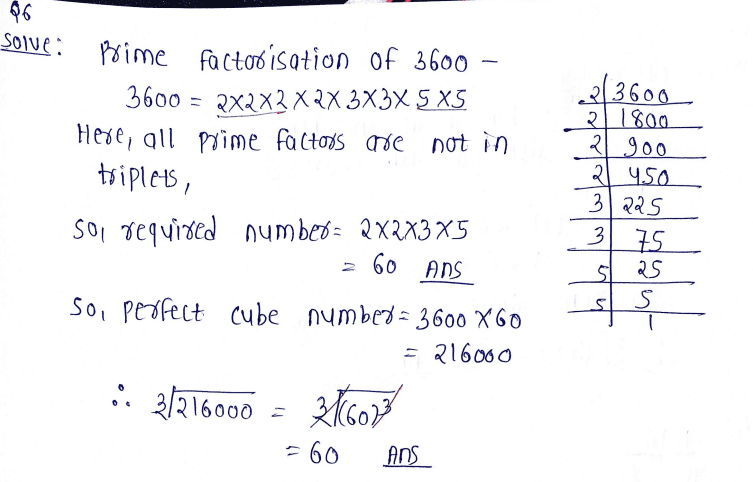 Q6
Solve:
Prime factorisation of 3600 -
3600 = 2×2×2×2×3×3×5×5
Here, all prime factors are not in
triplets,
so, required number = 2×2×3×5
= 60 Ans
So, perfect cube number = 3600 × 60
= 216000
∴ ∛216000 = ∛(60)³
= 60 Ans
2 | 3600
2 | 1800
2 | 900
2 | 450
3 | 225
3 | 75
5 | 25
5 | 5
1